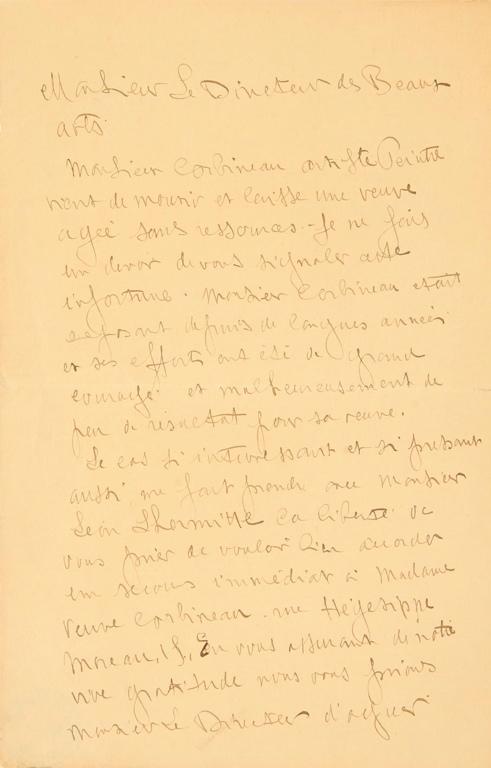 Monsieur Le Directeur des Beaux
arts
Monsieur Corbineau artiste Peintre
vient de mourir et laisse une veuve
agée sans ressources. Je me fais
un devoir de vous signaler cette
infortune. Monsieur Corbineau était
exposant depuis de longues années
et ses efforts ont été de grand
courage et malheureusement de
peu de résultat pour sa veuve.
Le cas si intéressant et si pressant
aussi me fait prendre avec Monsieur
Léon Lhermitte la liberté de
vous prier de vouloir bien accorder
un secours immédiat à Madame
Veuve Corbineau. rue Hégésippe
Moreau, 15, En vous assurant de notre
vive gratitude nous vous prions
Monsieur Le Directeur d'agréer